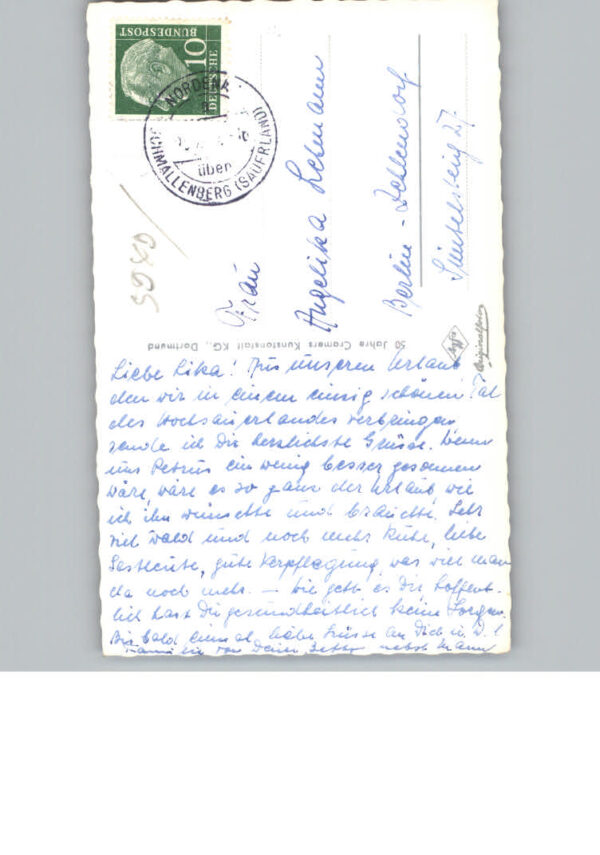 10
DEUTSCHE
BUNDESPOST
NORDENAU
über
SCHMALLENBERG (SAUERLAND)
5980
Frau
Angelika Lehmann
Berlin-Zehlendorf
27
50 Jahre Cramers Kunstanstalt KG., Dortmund
Agfa
Originalfoto
Liebe Lika! Aus unserem Urlaub
den wir in einem einzig schönen Tal
des Hochsauerlandes verbringen
sende ich Dir herzlichste Grüsse. Wenn
uns Petrus ein wenig besser gesonnen
wäre, wäre es so ganz der Urlaub, wie
ich ihn wünschte und brauchte. Sehr
viel Wald und noch mehr Ruhe, liebe
Gastleute, gute Verpflegung was will man
da noch mehr. — Wie geht es Dir hoffent-
lich hast Du gesundheitlich keine Sorgen.
Bis bald einmal liebe Grüsse an Dich u. D.
Familie von Deiner nebst Mann